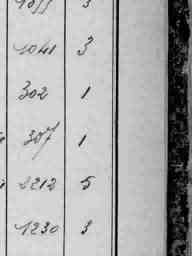 1041 3
302 1
307 1
2212 5
1230 3